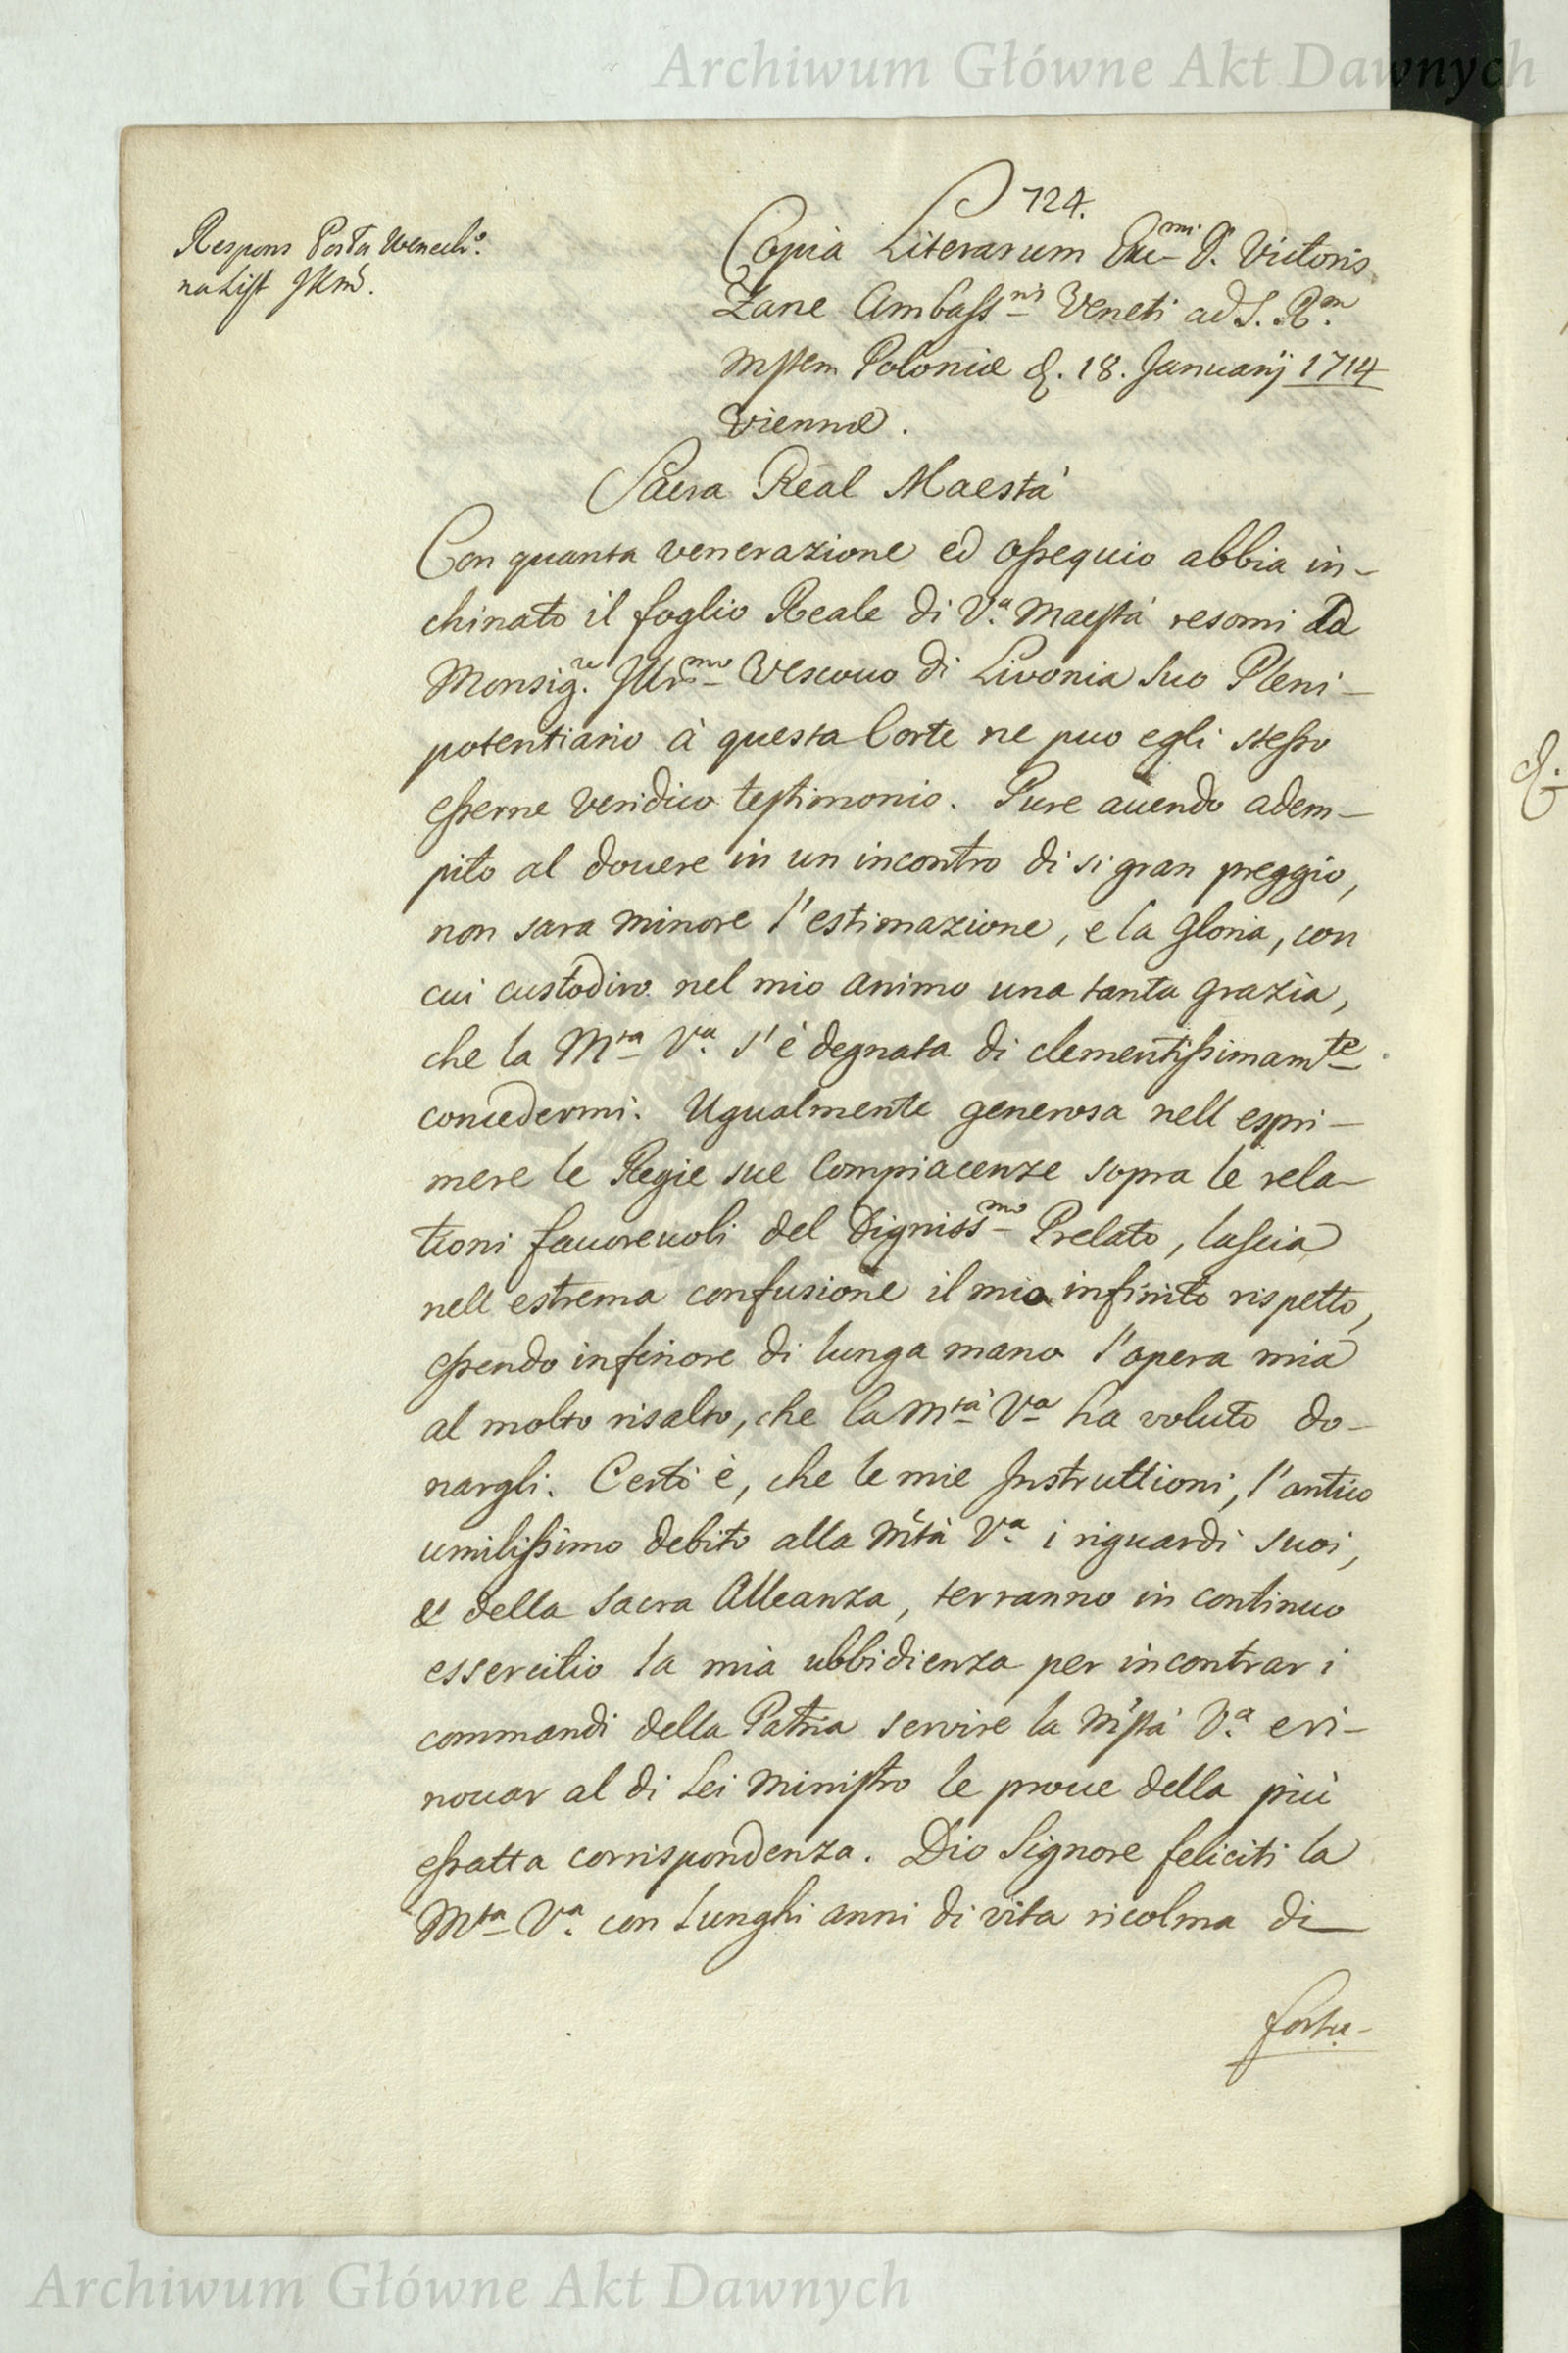 Archiwum Główne Akt Dawnych
724.
Respons Posła Weneckº.
na List JKmć.
Copia Literarum Exc̄mi D. Victoris
Zane Ambassris Veneti ad S. Rm.
Mstem Poloniæ d. 18. Januarij 1714
Viennæ.
Sacra Real Maestà
Con quanta venerazione ed ossequio abbia in-
chinato il foglio Reale di V.a Maestà resomi da
Monsig.re Illmo Vescouo di Livonia Suo Pleni-
potentiario à questa Corte ne puo egli stesso
esserne veridico testimonio. Pure auendo adem-
pito al douere in un incontro di si gran preggio,
non sara minore l'estimazione, e la Gloria, con
cui custodiro nel mio animo una tanta grazia,
che la Mta V.a s'è degnata di clementissimamte
concedermi. Ugualmente generosa nell espri-
mere le Regie sue Compiacenze sopra le rela-
tioni fauoreuoli del Dignissmo Prelato, lascia
nell estrema confusione il mio infinito rispetto,
essendo inferiore di lunga mano l'opera mia
al molto risalto, che la Mtà Va ha voluto do-
nargli. Certo è, che le mie Instruttioni, l'antico
umilissimo debito alla Mtà V.a i riguardi suoi,
& della Sacra Alleanza, terranno in continuo
essercitio la mia ubbidienza per incontrar i
commandi della Patria servire la Mstà V.a e ri-
nouar al di Lei Ministro le proue della più
essatta corrispondenza. Dio Signore feliciti la
Mta V.a con Lunghi anni di vita ricolma di
fortu-
Archiwum Główne Akt Dawnych